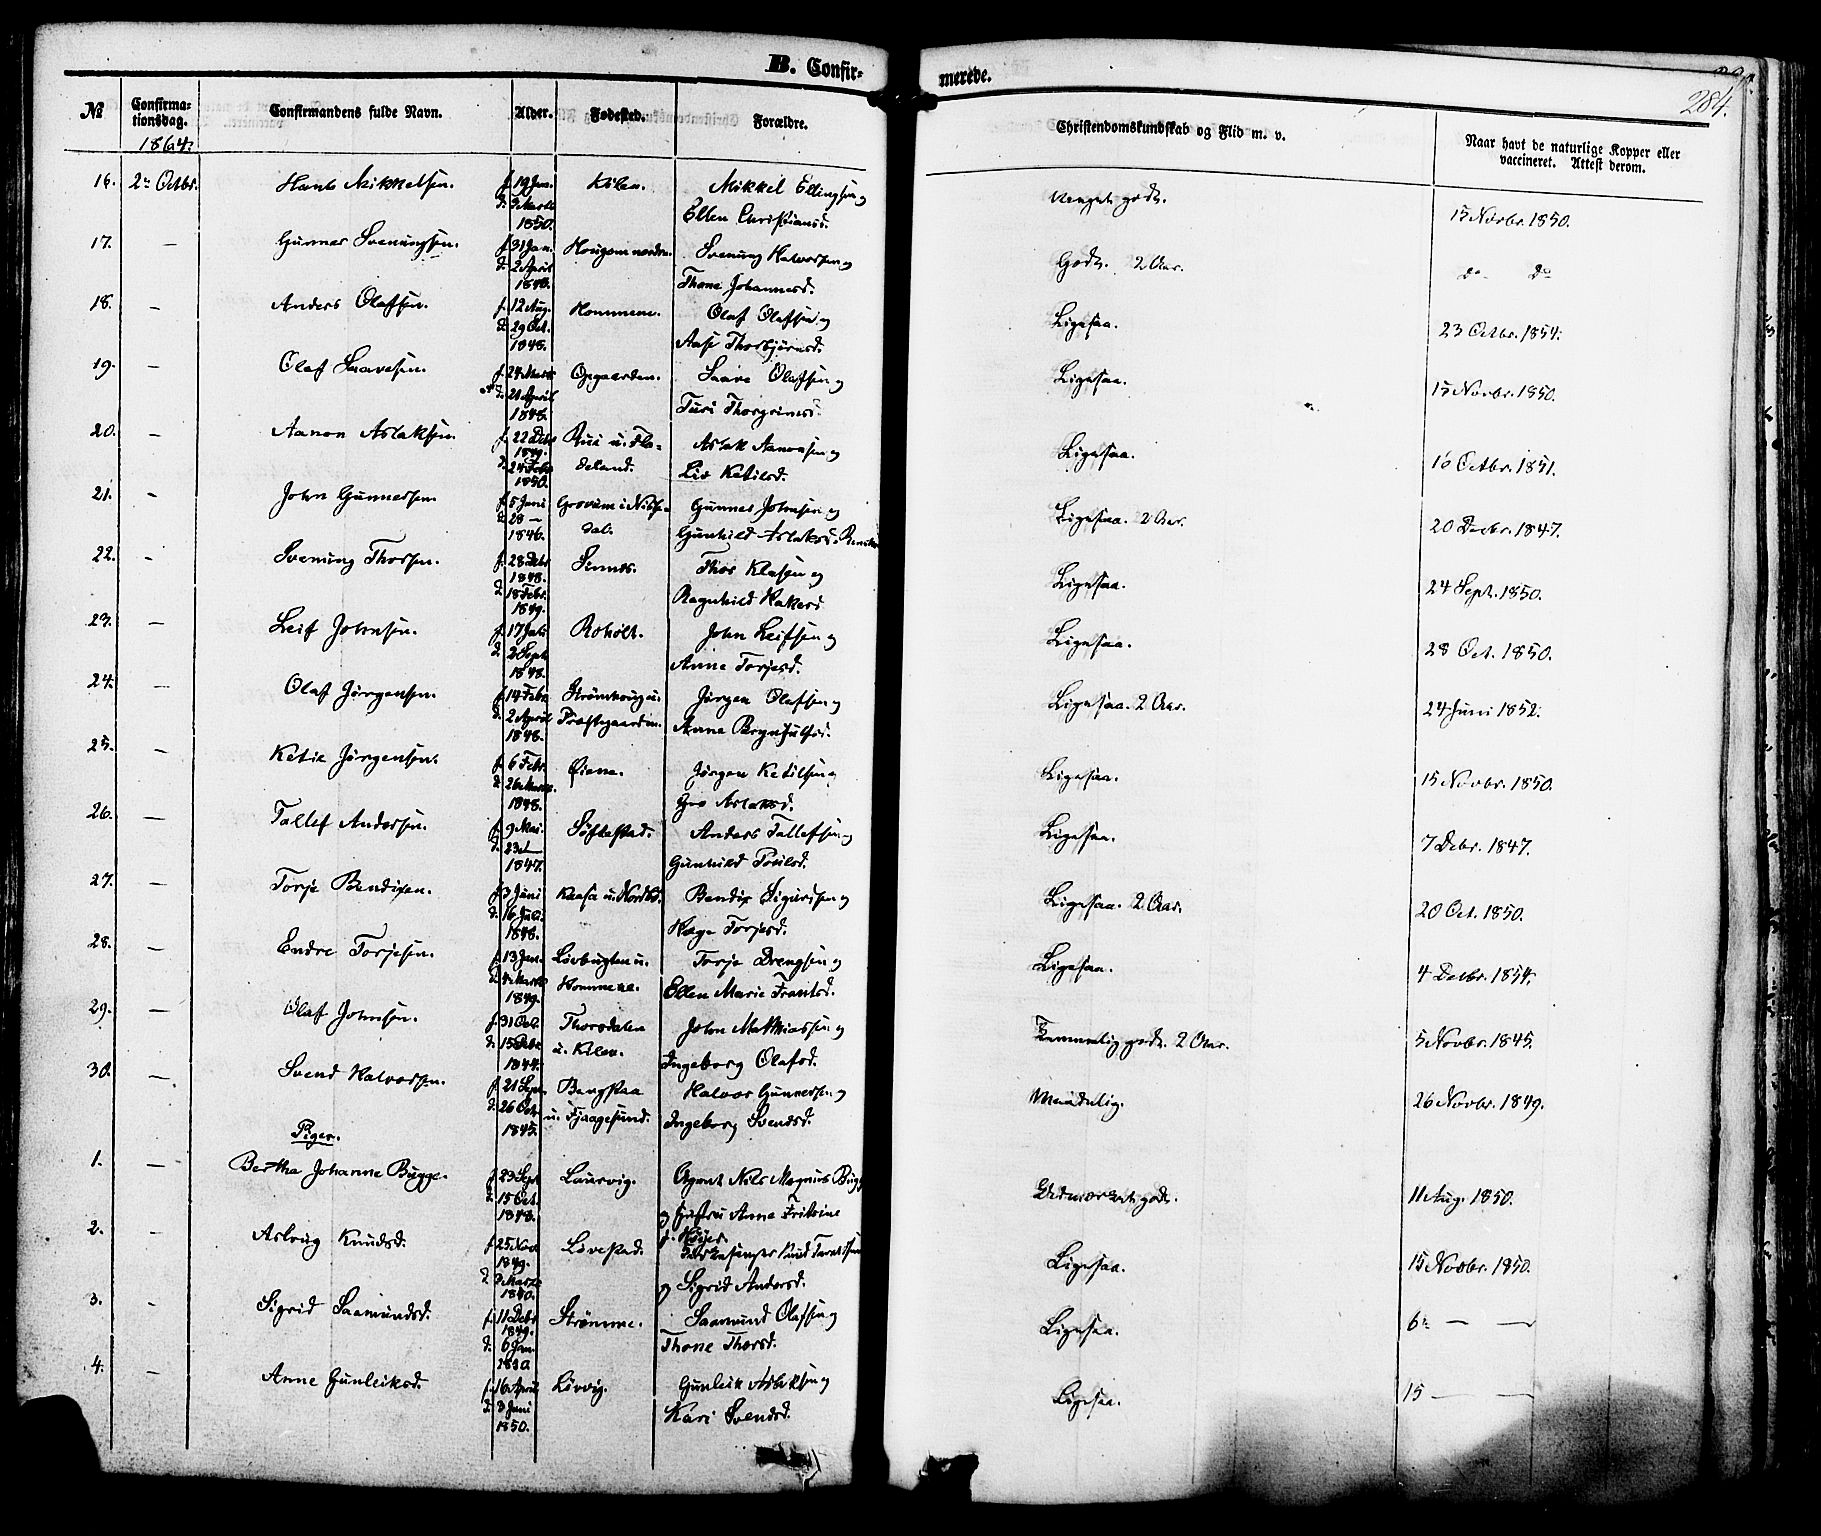 B. Confir-
merede.
284.
№ Confirma-tionsdag. Confirmandens fulde Navn. Alder. Fødested. Forældre. Christendomskundskab og Flid m. v. Naar havt de naturlige Kopper eller vaccineret. Attest derom.
1864.
16. 2n Octbr. Mikkelsen. f. 19 Jan. Kilen. Mikkel Ellingsen og Meget godt. 15 Novbr. 1850.
d. 1850. Ellen Christiansd.
17. — Gunnar Svenungsen. f. 31 Jan. Svenung Halvorsen og Godt. 2 Aar. do do
d. 2 April 1848. Thone Johannesd.
18. — Anders Olafsen. f. 12 Aug. Hommene. Olaf Olafsen og Ligesaa. 23 Octbr. 1854.
d. 29 Oct. 1848. Aase Thorbjørnsd.
19. — Olaf Saavesen. f. 24 Marts Opgaarden. Saave Olafsen og Ligesaa. 15 Novbr. 1850.
d. 21 April 1848. Turi Thorgrimsd.
20. — Aanon Aslaksen. f. 22 Debr 1849. Rui u. Fla- Aslak Aanonsen og Ligesaa. 16 Octbr. 1851.
d. 24 Febr 1850. deland. Liv Ketilsd.
21. — John Gunnarsen f. 5 Juni Grovum i Nisse- Gunnar Johnsen og Ligesaa. 2 Aar. 20 Decbr. 1847.
d. 28 — 1846. dal. Gunhild Aslaksd.
22. — Svenung Thorsen. f. 28 Debr 1848. Sinnes. Thor Klasen og Ligesaa. 24 Sept. 1850.
d. 18 Febr. 1849. Ragnhild
23. — Leif Johnsen. f. 17 Juli Roholt. John Leifsen og Ligesaa. 28 Oct. 1850.
d. 2 Sept 1848. Anne Torjesd.
24. — Olaf Jørgensen. f. 14 Febr Jørgen Olafsen og Ligesaa. 2 Aar. 24 Juni 1852.
d. 2 April 1848. Præstegaarden. Anne
25. — Ketil Jørgensen. f. 6 Febr. Øiene. Jørgen Ketilsen og Ligesaa. 15 Novbr. 1850.
d. 26 Marts 1848. Gro Aslaksd.
26. — Tallef Andersen. f. 9 Mai. Søftestad. Anders Tallefsen og Ligesaa. 7 Debr. 1847.
d. 23d — 1847. Gunhild
27. — Torje Bendixen. f. 3 Juni Kaasa u. Nordbd. Bendix Sigurdsen og Ligesaa. 2 Aar. 20 Oct. 1850.
d. 16 Juli. 1848. Hæge Torjesd.
28. — Endre Torjesen. f. 13 Jan. Livbugten u. Torje Drengsen og Ligesaa. 4 Decbr. 1854.
d. 4 Marts 1849. Hommene. Ellen Marie Frantsd.
29. — Olaf Johnsen. f. 31 Oct. Thorsdalen John Mathiassen og Temmelig godt. 2 Aar. 5 Novbr. 1845.
d. 15 Debr 1844. u. Kilen. Ingeborg Olafsd.
30. — Svend Halvorsen. f. 21 Sept. Bergstaa Halvor Gunnarsen og Maadelig. 26 Novbr. 1849.
d. 26 Octr. 1845. u. Fjaagesund. Ingeborg Svendsd.
Piger.
1. — Bertha Johanne Bugge. f. 23 Sept Laurvig. Agent Nils Magnus Bugge Udmærket godt. 11 Aug. 1850.
d. 15 Oct. 1848. og Hustru Anne
2. — Aslaug Knudsd. f. 25 Nov 1849. Løvestad. Kirkesanger Knud Ligesaa. 15 Novbr. 1850.
d. 3 Marts og Sigrid Andersd.
3. - Sigrid Saamundsd. f. 11 Debr 1849. Strømme. Saamund Olafsen og Ligesaa. 6te — —
d. 6 Jan. 1850. Thone Thorsd.
4. — Anne Gunleiksd. f. 16 April Livvig. Gunleik Aslaksen og Ligesaa. 15 — —
d. 3 Juni 1850. Kari Svendsd.